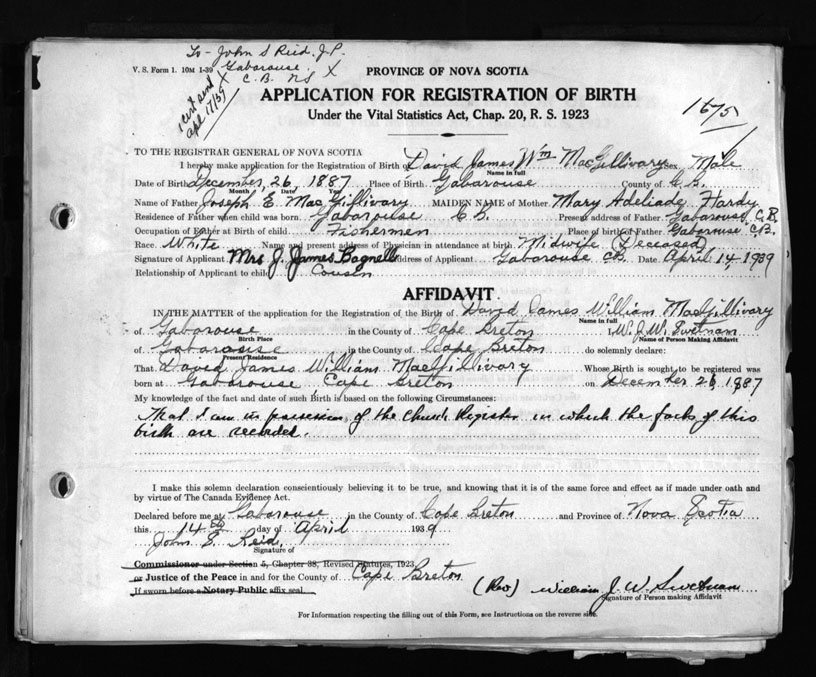 To - John S Reid, J.P.
Gabarouse X
V. S. Form 1. 10M 1-39 X C.B. NS
1 cert sent
apl 17/39
PROVINCE OF NOVA SCOTIA
APPLICATION FOR REGISTRATION OF BIRTH
Under the Vital Statistics Act, Chap. 20, R. S. 1923
TO THE REGISTRAR GENERAL OF NOVA SCOTIA
I hereby make application for the Registration of Birth of David James Wm MacGillivary Sex Male
Name in full
Date of Birth December, 26, 1887 Place of Birth Gabarouse County of C.B.
Month Date Year
Name of Father Joseph E. MacGillivary MAIDEN NAME of Mother Mary Adeliade Hardy
Residence of Father when child was born Gabarouse C.B. Present address of Father Gabarouse C.B.
Occupation of Father at Birth of child Fishermen Place of birth of Father Gabarouse C.B.
Race White Name and present address of Physician in attendance at birth Midwife (Deceased)
Signature of Applicant Mrs J. James Bagnell Address of Applicant Gabarouse CB Date April 14, 1939
Relationship of Applicant to child Cousin
AFFIDAVIT
IN THE MATTER of the application for the Registration of the Birth of David James William MacGillivary
Name in full
of Gabarouse in the County of Cape Breton I, W. J. W. Swetnam
Birth Place Name of Person Making Affidavit
of Gabarouse in the County of Cape Breton do solemnly declare:
Present Residence
That David James William MacGillivary Whose Birth is sought to be registered was
born at Gabarouse Cape Breton on December 26, 1887
My knowledge of the fact and date of such Birth is based on the following Circumstances:
That I am in possession of the Church Register in which the facts of this
birth are recorded.
I make this solemn declaration conscientiously believing it to be true, and knowing that it is of the same force and effect as if made under oath and
by virtue of The Canada Evidence Act.
Declared before me at Gabarouse in the County of Cape Breton and Province of Nova Scotia
this 14th day of April 1939
John S. Reid,
Signature of
Commissioner under Section 5, Chapter 38, Revised Statutes, 1923
or Justice of the Peace in and for the County of Cape Breton
If sworn before a Notary Public affix seal (Rev) William J. W. Swetnam
Signature of Person making Affidavit
For Information respecting the filling out of this Form, see Instructions on the reverse side.